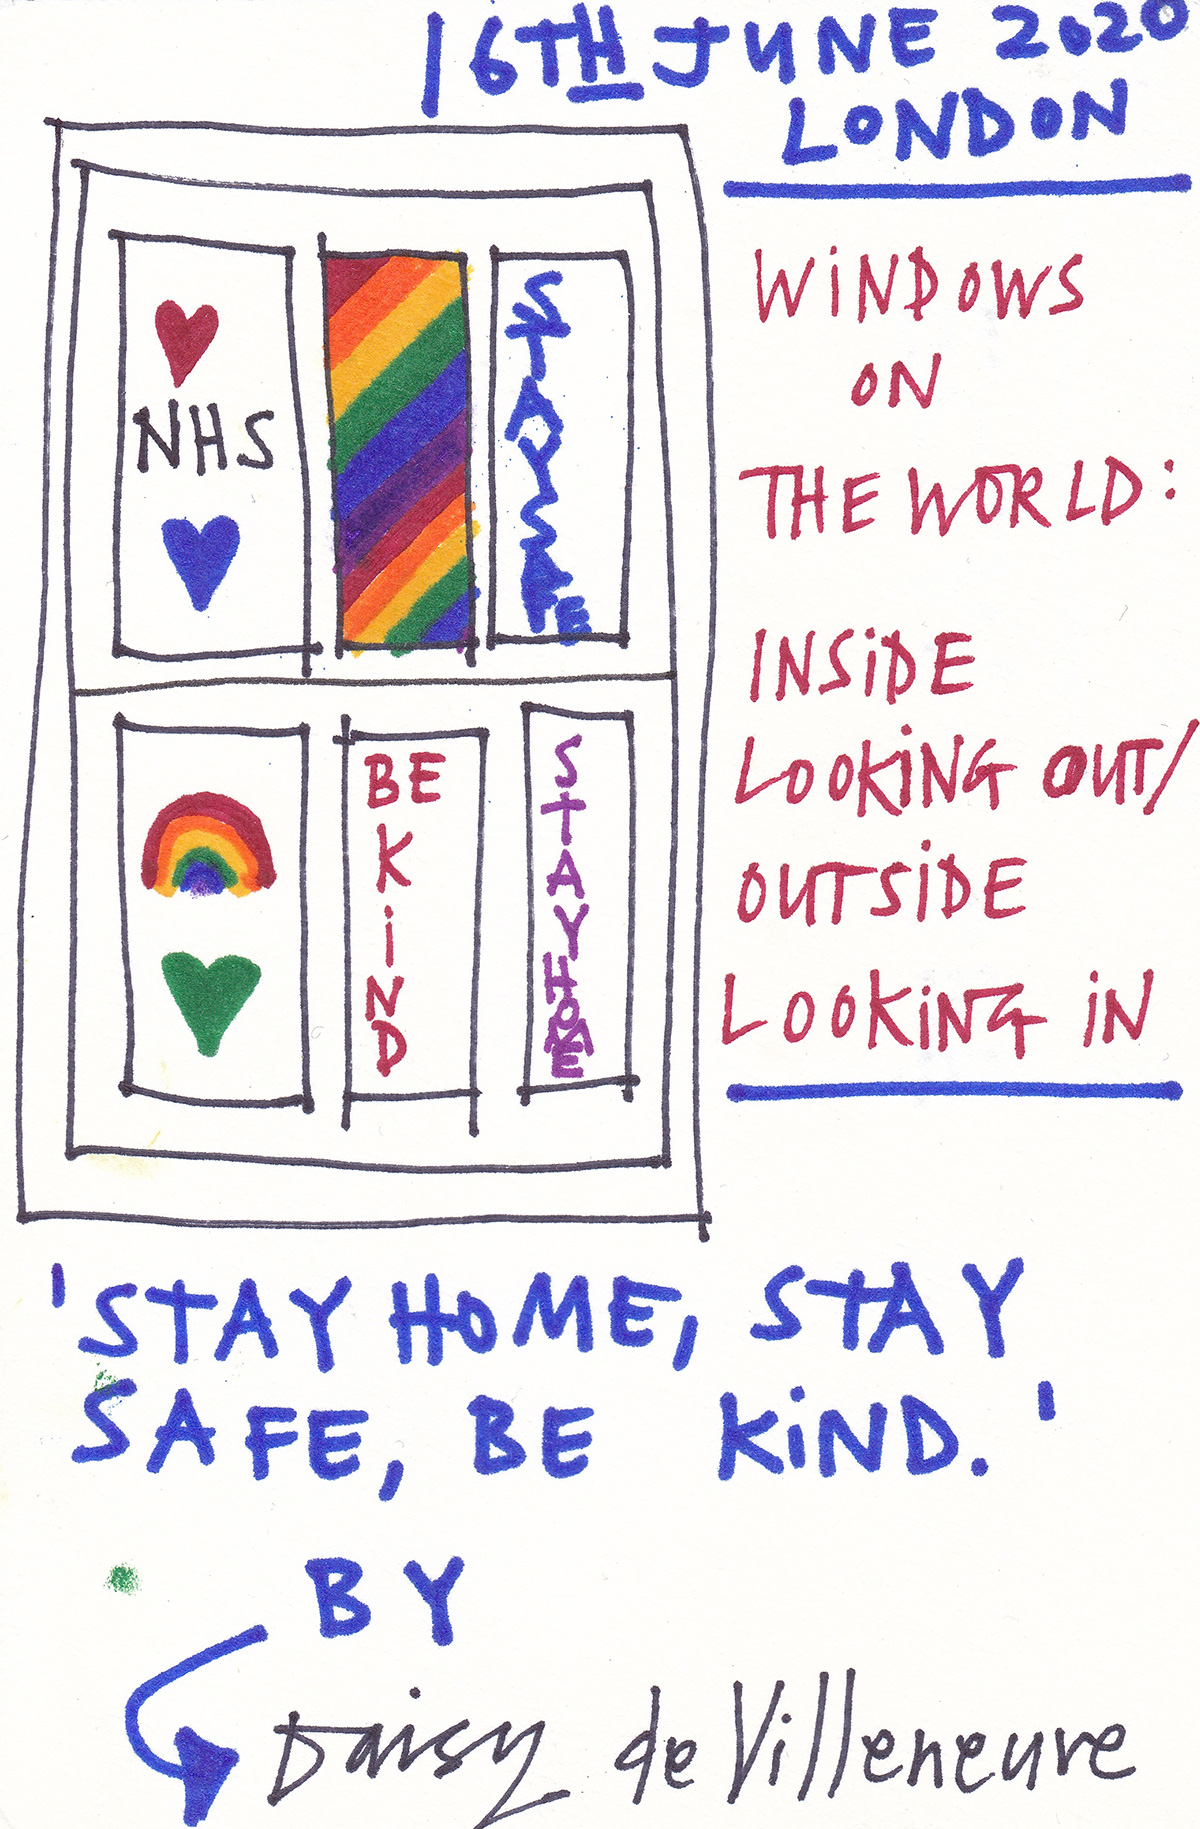 16TH JUNE 2020
LONDON
NHS
STAY SAFE
BE
KiND
STAY HOME
WiNDOWS
ON
THE WORLD:
INSiDE
LOOKiNG OUT/
OUTSiDE
LOOKiNG iN
'STAY HOME, STAY
SAFE, BE KiND.'
BY
Daisy de Villeneuve